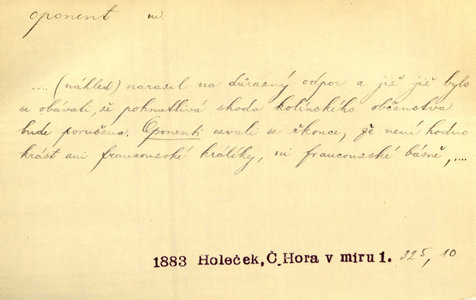 oponent m.
.... (náhled) narazil na důrazný odpor a již již bylo
se obávati, že pohnutlivá shoda kolínského občanstva
bude porušena. Oponenti ozvali se řkouce, že není hodno
krást ani francouzské králíky, ni francouzské básně, ....
1883 Holeček, Č. Hora v míru 1. 325, 10